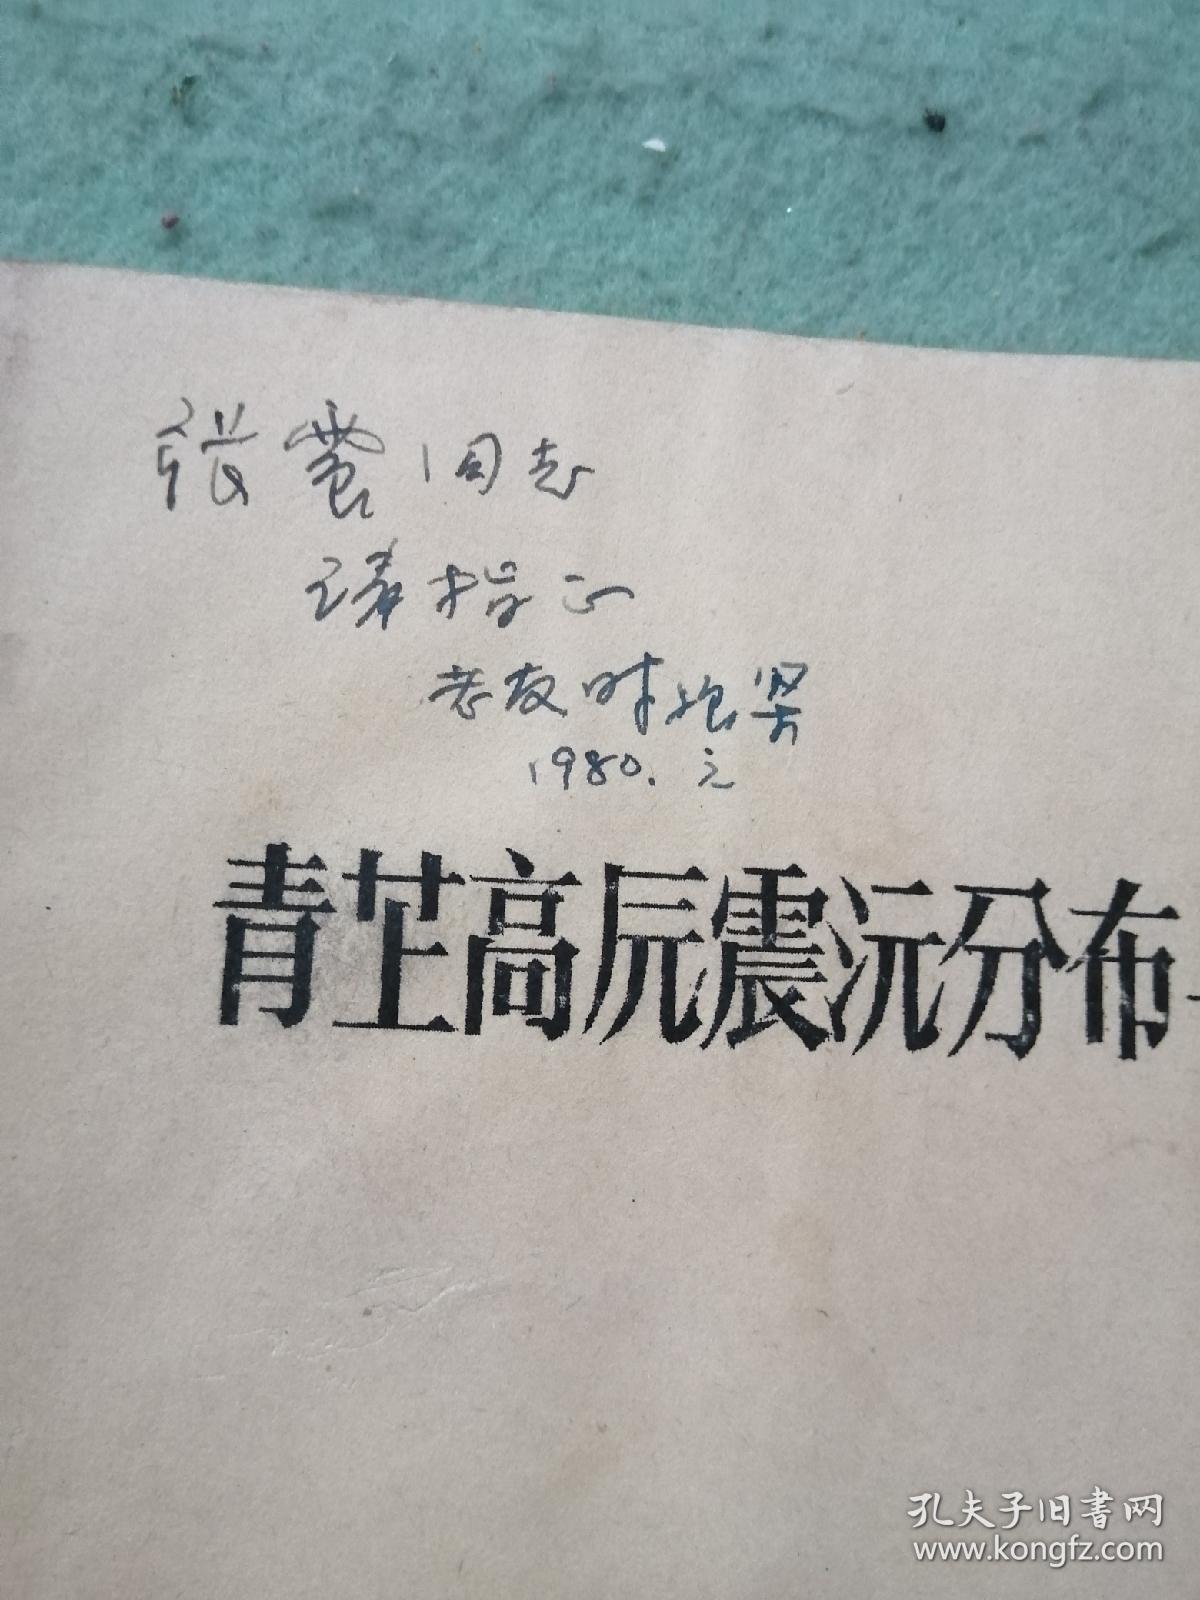 张雲同志
请指正
老友时振梁
1980.元
青芷高㕂震沅分布
孔夫子旧书网
www.kongfz.com